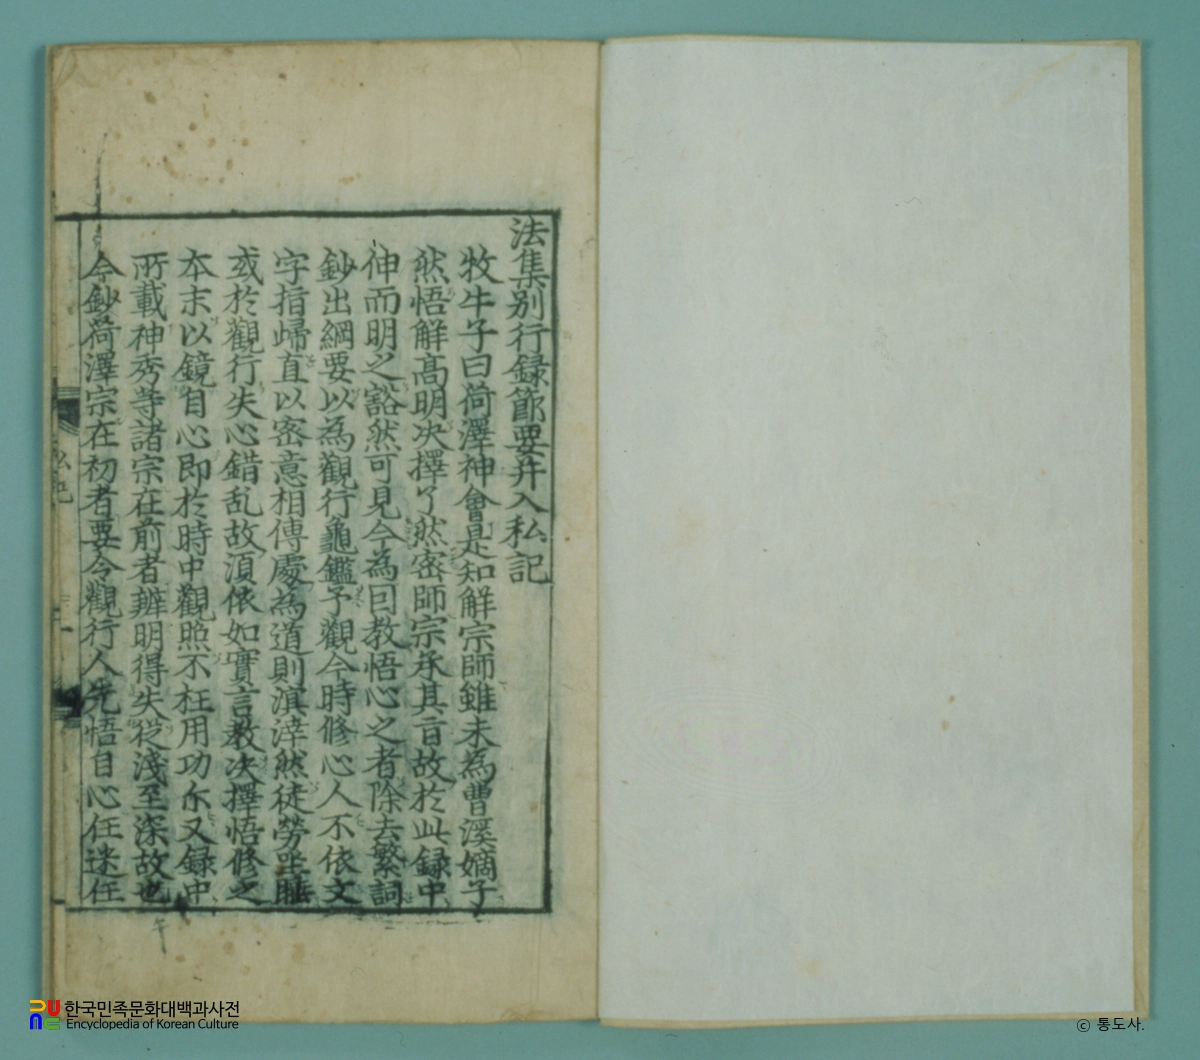 法集别行録節要并入私記
牧牛子曰荷澤神會是知解宗師雖未為曹溪嫡子
然悟解髙明决擇了然密師宗承其旨故於此録中
伸而明之豁然可見今為因教悟心之者除去繁詞
鈔出綱要以為觀行龜鑑予觀今時修心人不依文
字指歸直以密意相傳處為道則溟涬然徒勞坐睡
或於觀行失心錯乱故湏依如實言教决擇悟修之
本末以鏡自心即於時中觀照不枉用功尒又録中
所載神秀等諸宗在前者辨明得失從淺至深故也
今鈔荷澤宗在初者要令觀行人先悟自心任迷任
私記
한국민족문화대백과사전
Encyclopedia of Korean Culture
ⓒ 통도사.